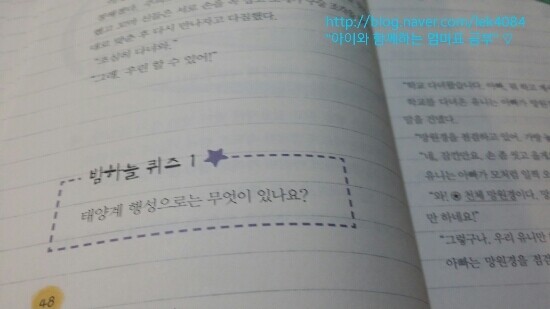 http://blog.naver.com/
"아이와 함께하는
대로 맞춘 후 다시 만나자고 다짐했다.
"조심히 다녀와."
"그래, 우린 할 수 있어!"
밤하늘 퀴즈 1
태양계 행성으로는 무엇이 있나요?
48
"학교 다녀왔습니다. 아빠, 뭐 하고 계
학교를 다녀온 유나는 아빠가 망원
말을 건넸다.
"망원경을 점검하고 있어. 가방
"네, 잠깐만요. 손 좀 씻고 올게
유나는 아빠가 모처럼 일찍 오
"와! 천체 망원경이다.
만 하네요!"
"그렇구나. 우리 유나만
아빠는 망원경을 점검